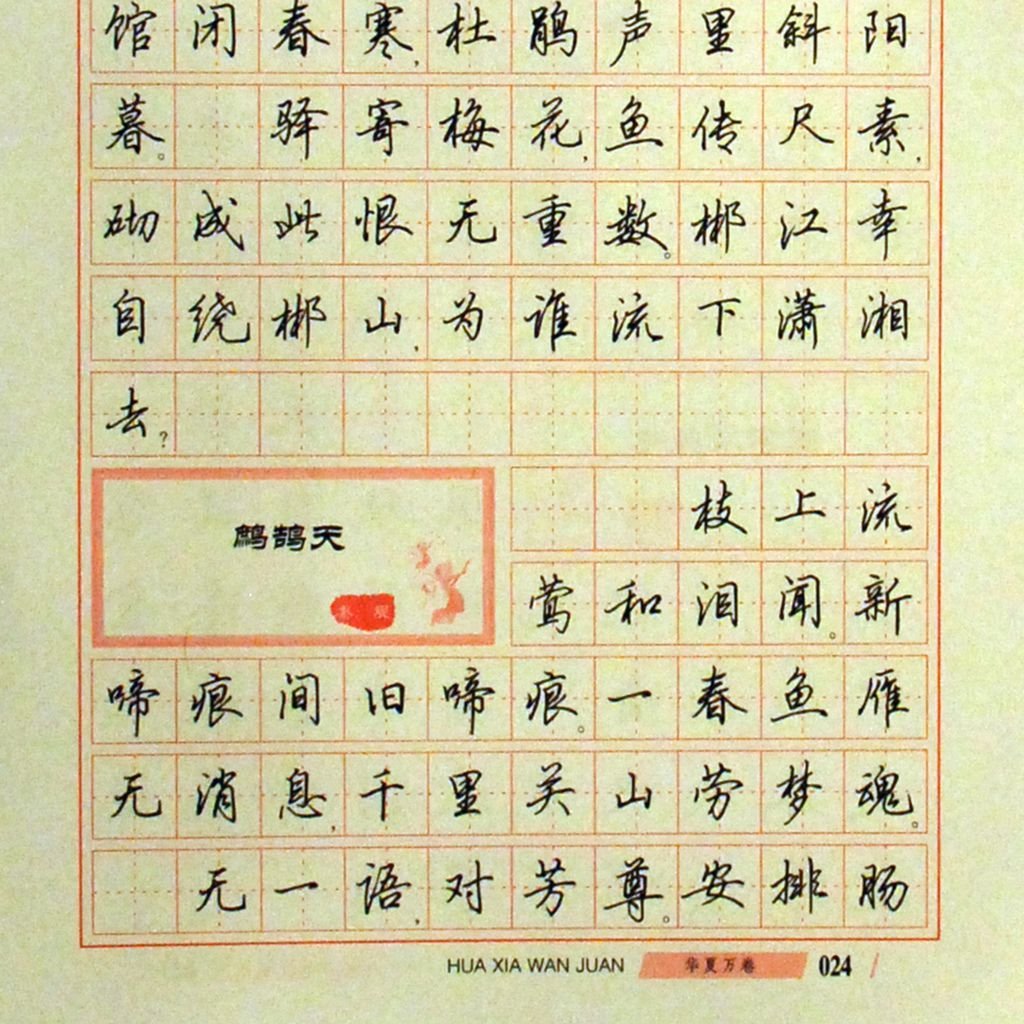 馆闭春寒,杜鹃声里斜阳
暮。 驿寄梅花,鱼传尺素,
砌成此恨无重数。郴江幸
自绕郴山,为谁流下潇湘
去?
鹧鸪天
枝上流
莺和泪闻。新
啼痕间旧啼痕。一春鱼雁
无消息,千里关山劳梦魂。
无一语,对芳尊。安排肠
HUA XIA WAN JUAN 华夏万卷 024